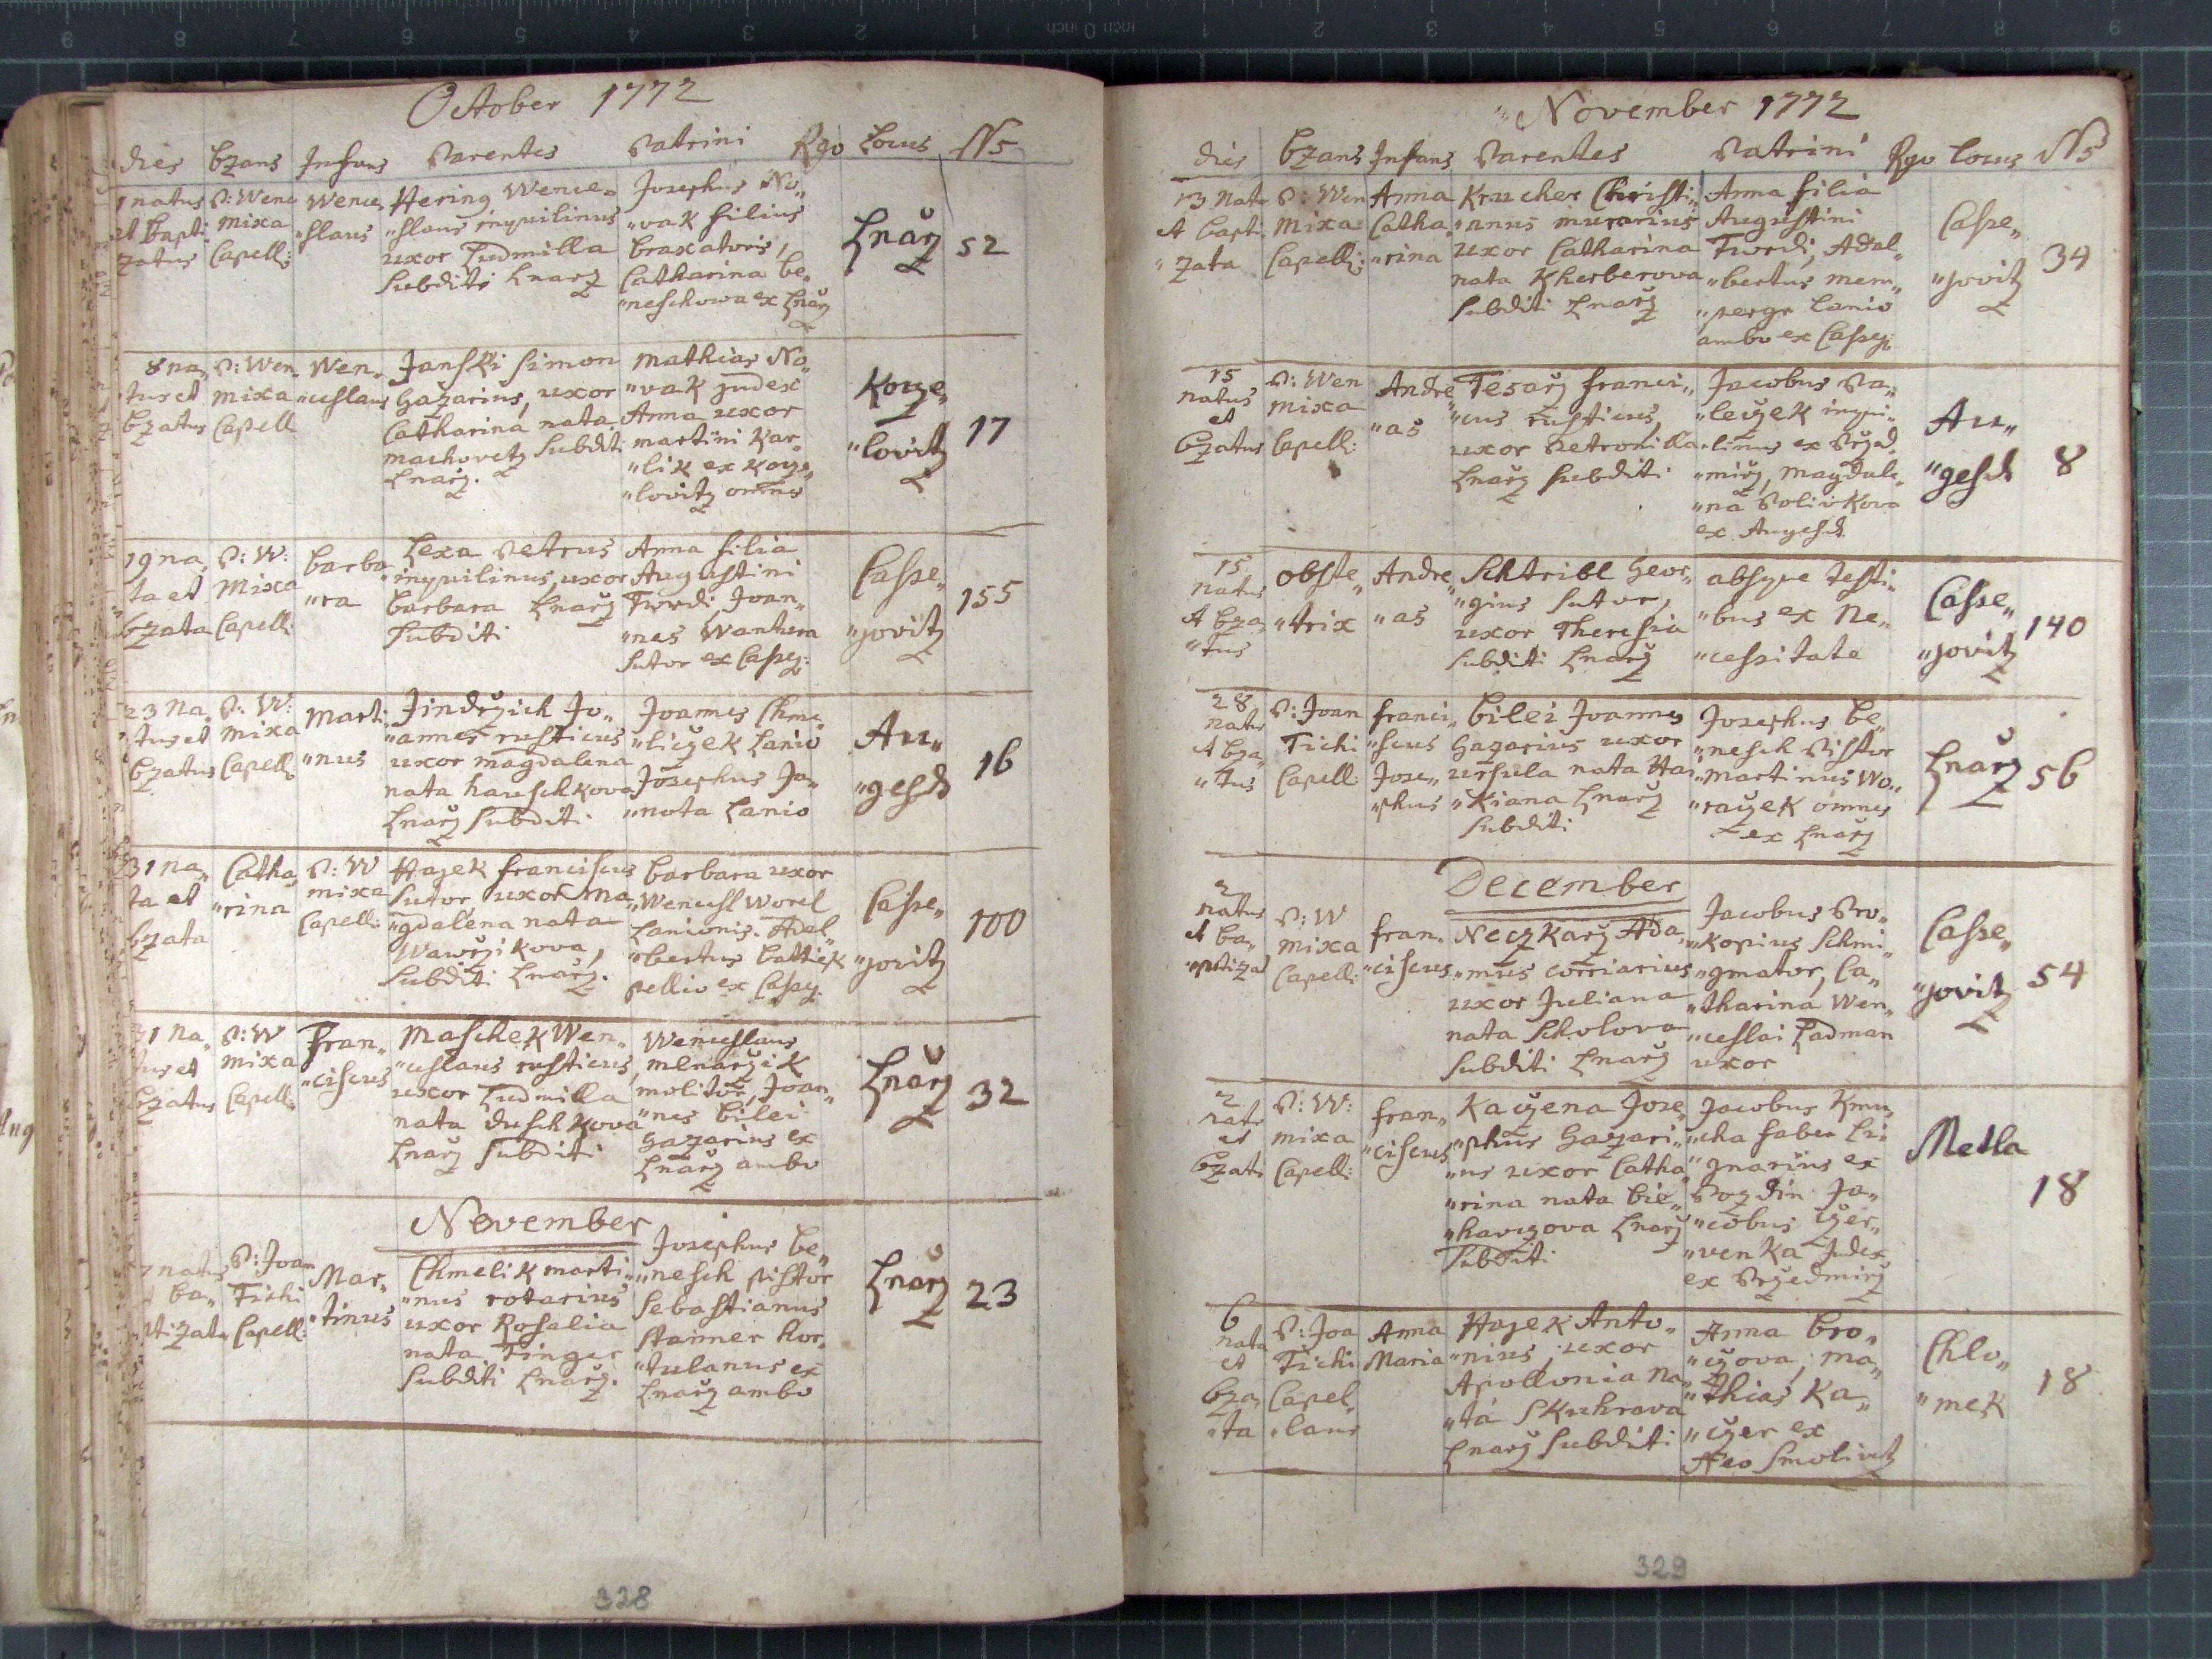 October 1772
dies bzans Infans Parentes Patrini Rgo Locus No
1 natus et bapti zatus
P: Wenc mixa Capell:
Wence „slaus
Hering Wence„
„slaus inquilinus
uxor Ludmilla
Subditi Lnarz
Josephus No„
„vak filius
braxatoris,
Catharina be„
„neschowa ex Lnarz
Lnarz
52
8 na„ tus et bzatus
P: Wen. mixa Capell
Wen„ „ceslaus
Janski Simon
Gazarius, uxor
Catharina nata
machovetz Subditi
Lnarz.
Mathias No„
„vak judex
Anna uxor
martini Kar„
„lik ex Koze„
„lovitz omnes
Koze„
„lovitz
17
19 na„ ta et bzata
P: W: Mixa Capell:
barba „ra
Lexa Petrus
inquilinus, uxor
barbara Lnarz
Subditi
Anna filia
Augustini
Twrdi, Joan„
„nes Wanhera
Sutor ex Cassej:
Casse„
„jovitz
155
23 Na„ tus et bzatus
P: W: mixa Capell:
Marti „nus
Jindrzich Jo„
„annes rusticus
uxor magdalena
nata hauschkova
Lnarz Subditi.
Joannes Chme„
„liczek Lanio
Josephus Ja„
„nota Lanio
Au„
„gesd
16
31 na„ ta et bzata
Catha „rina
P: W mixa Capell:
Hajek franciscus
Sutor, uxor Ma„
„gdalena nata
Wawrzikova,
Subditi Lnarz.
barbara uxor
Wencesl Worel
Lanionis. Adal„
„bertus battiek
pellio ex Cassej.
Casse„
„jovitz
100
31 Na„ tus et bzatus
P: W mixa Capell:
Fran„ „ciscus
Maschek Wen„
„ceslaus rusticus,
uxor Ludmilla
nata duschkova
Lnarz Subditi
Wenceslaus
mlnarzik
molitor, Joan„
„nes bilei
Gazarius ex
Lnarz ambo
Lnarz
32
November
7 natus et ba„ ptizatus
P: Joan Tichi Capell:
Mar„ „tinus
Chmelik marti„
„nus rotarius
uxor Rosalia
nata Finger
Subditi Lnarz.
Josephus be„
„nesch pistor
Sebastianus
Stainer hor„
„tulanus ex
Lnarz ambo
Lnarz
23
328
November 1772
dies bzans Infans Parentes Patrini Rgo Locus No
13 nata et bapti „zata
P: Wen Mixa Capell:
Anna Catha„ „rina
Krucher Christi„
„anus murarius
uxor Catharina
nata Kherberova
Subditi Lnarz
Anna filia
Augustini
Twrdi, Adal„
„bertus mem„
„pergr Lanio
ambo ex Cassej:
Casse„
„jovitz
34
15 natus et bzatus
P: Wen mixa Capell:
Andre „as
Tesarz franci„
„cus rusticus,
uxor Petronilla
Lnarz subditi
Jacobus Pa„
„leczek inqui„
„linus ex Przed„
„mirz, Magdale„
„na Polivkova
ex Augesd.
Au„
„gesd
8
15 natus et bza„ „tus
obste„ „trix
Andre „as
Schtribl Geor„
„gius Sutor,
uxor Theresia
Subditi Lnarz
absque testi„
„bus ex Ne„
„cessitate
Casse„
„jovitz
140
28 natus et bza„ „tus
P: Joan Tichi Capell:
franci„ „scus Jose„ „phus
bilei Joannes
Gazarius uxor
ursula nata Hai„
„kiana Lnarz
Subditi
Josephus be„
„nesch Pistor
Martinus Wo„
„raczek omnes
ex Lnarz
Lnarz
56
December
2 natus et ba„ „ptizat
P: W mixa Capell:
fran„ „ciscus
Neczkarz Ada„
„mus corriarius
uxor Juliana
nata Scholova
Subditi Lnarz
Jacobus Pro„
„kopius Schmi„
„gmator, Ca„
„tharina Wen„
„ceslai Ladman
uxor
Casse„
„jovitz
54
2 nats et bzats
P: W: mixa Capell:
fran„ „ciscus
Kaczena Jose„
„phus Gazari„
„us uxor Catha„
„rina nata bie„
„havczova Lnarz
Subditi
Jacobus Kmu„
„cha faber Li„
„gnarius ex
Pozdin Ja„
„cobus Czer„
„venka Judex
ex Przedmirz
Metla
18
6 nata et bza„ „ta
P: Joa Tichi Capel„ „lanus
Anna Maria
Hajek Anto„
„nius, uxor
Apollonia na„
„ta Skuhrova
Lnarz Subditi
Anna bro„
„czova, ma„
„thias Ka„
„czer ex
Neo Smolivetz
Chlu„
„mek
18
329